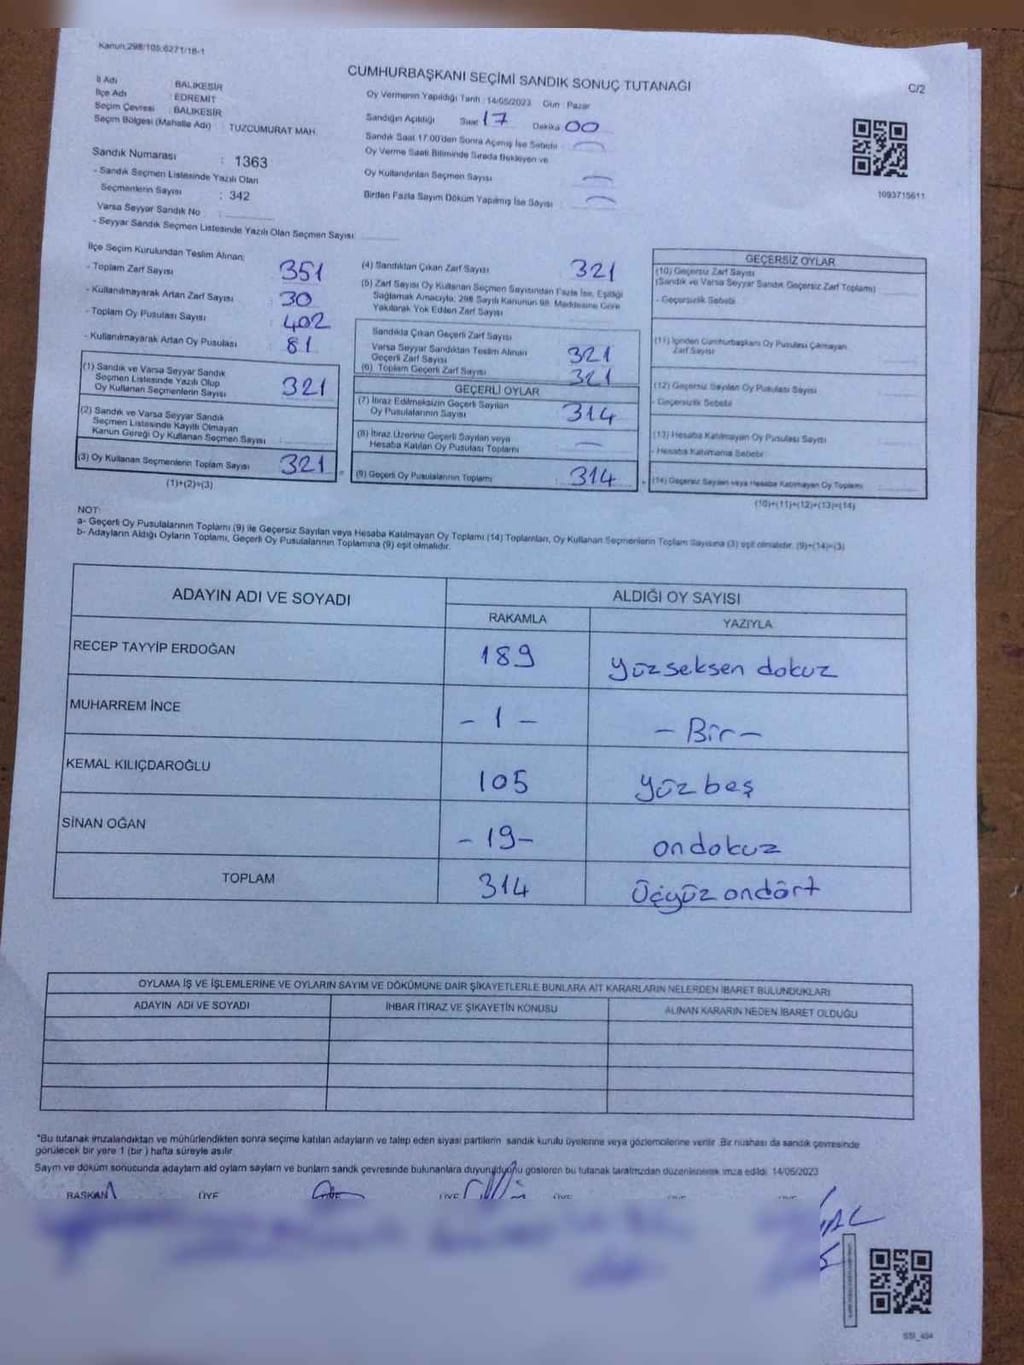 Kanun:298/105;6271/18-1
CUMHURBAŞKANI SEÇİMİ SANDIK SONUÇ TUTANAĞI
C/2
İl Adı : BALIKESİR
İlçe Adı : EDREMİT
Seçim Çevresi : BALIKESİR
Seçim Bölgesi (Mahalle Adı) : TUZCUMURAT MAH.
Sandık Numarası : 1363
- Sandık Seçmen Listesinde Yazılı Olan
Seçmenlerin Sayısı : 342
Varsa Seyyar Sandık No :
- Seyyar Sandık Seçmen Listesinde Yazılı Olan Seçmen Sayısı
Oy Vermenin Yapıldığı Tarih : 14/05/2023 Gün : Pazar
Sandığın Açıldığı Saat 17 Dakika 00
Sandık Saat 17:00'den Sonra Açılmış İse Sebebi
Oy Verme Saati Bitiminde Sırada Bekleyen ve
Oy Kullandırılan Seçmen Sayısı
Birden Fazla Sayım Döküm Yapılmış İse Sayısı
1093715611
İlçe Seçim Kurulundan Teslim Alınan;
- Toplam Zarf Sayısı 351
- Kullanılmayarak Artan Zarf Sayısı 30
- Toplam Oy Pusulası Sayısı 402
- Kullanılmayarak Artan Oy Pusulası 81
(1) Sandık ve Varsa Seyyar Sandık
Seçmen Listesinde Yazılı Olup
Oy Kullanan Seçmenlerin Sayısı 321
(2) Sandık ve Varsa Seyyar Sandık
Seçmen Listesinde Kayıtlı Olmayan
Kanun Gereği Oy Kullanan Seçmen Sayısı
(3) Oy Kullanan Seçmenlerin Toplam Sayısı 321
(1)+(2)=(3)
(4) Sandıktan Çıkan Zarf Sayısı 321
(5) Zarf Sayısı Oy Kullanan Seçmen Sayısından Fazla İse, Eşitliği
Sağlamak Amacıyla, 298 Sayılı Kanunun 98. Maddesine Göre
Yakılarak Yok Edilen Zarf Sayısı
Sandıkta Çıkan Geçerli Zarf Sayısı
Varsa Seyyar Sandıktan Teslim Alınan
Geçerli Zarf Sayısı 321
(6) Toplam Geçerli Zarf Sayısı 321
GEÇERLİ OYLAR
(7) İtiraz Edilmeksizin Geçerli Sayılan
Oy Pusulalarının Sayısı 314
(8) İtiraz Üzerine Geçerli Sayılan veya
Hesaba Katılan Oy Pusulası Toplamı
(9) Geçerli Oy Pusulalarının Toplamı 314
GEÇERSİZ OYLAR
(10) Geçersiz Zarf Sayısı
(Sandık ve Varsa Seyyar Sandık Geçersiz Zarf Toplamı)
- Geçersizlik Sebebi
(11) İçinden Cumhurbaşkanı Oy Pusulası Çıkmayan
Zarf Sayısı
(12) Geçersiz Sayılan Oy Pusulası Sayısı
- Geçersizlik Sebebi
(13) Hesaba Katılmayan Oy Pusulası Sayısı
- Hesaba Katılmama Sebebi
(14) Geçersiz Sayılan veya Hesaba Katılmayan Oy Toplamı
(10)+(11)+(12)+(13)=(14)
NOT:
a- Geçerli Oy Pusulalarının Toplamı (9) ile Geçersiz Sayılan veya Hesaba Katılmayan Oy Toplamı (14) Toplamları, Oy Kullanan Seçmenlerin Toplam Sayısına (3) eşit olmalıdır. (9)+(14)=(3)
b- Adayların Aldığı Oyların Toplamı, Geçerli Oy Pusulalarının Toplamına (9) eşit olmalıdır.
ADAYIN ADI VE SOYADI ALDIĞI OY SAYISI
RAKAMLA YAZIYLA
RECEP TAYYİP ERDOĞAN 189 yüzseksen dokuz
MUHARREM İNCE - 1 - - Bir -
KEMAL KILIÇDAROĞLU 105 yüz beş
SİNAN OĞAN - 19 - on dokuz
TOPLAM 314 üçyüz ondört
OYLAMA İŞ VE İŞLEMLERİNE VE OYLARIN SAYIM VE DÖKÜMÜNE DAİR ŞİKAYETLERLE BUNLARA AİT KARARLARIN NELERDEN İBARET BULUNDUKLARI
ADAYIN ADI VE SOYADI İHBAR İTİRAZ VE ŞİKAYETİN KONUSU ALINAN KARARIN NEDEN İBARET OLDUĞU
*Bu tutanak imzalandıktan ve mühürlendikten sonra seçime katılan adayların ve talep eden siyasi partilerin sandık kurulu üyelerine veya gözlemcilerine verilir. Bir nüshası da sandık çevresinde
görülecek bir yere 1 (bir) hafta süreyle asılır.
Sayım ve döküm sonucunda adayların aldığı oyların sayıları ve bunların sandık çevresinde bulunanlara duyurulduğunu gösteren bu tutanak tarafımızdan düzenlenerek imza edildi. 14/05/2023
BAŞKAN ÜYE ÜYE ÜYE